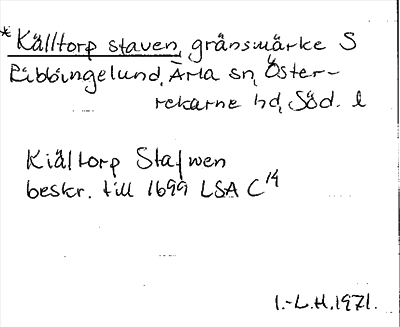 * Källtorp staven, gränsmärke S
Ribbingelund, Ärla sn, Öster-
rekarne hd, Söd. l
Kiälltorp Stafwen
beskr. till 1699 LSA C 14
I.-L.H. 1971.